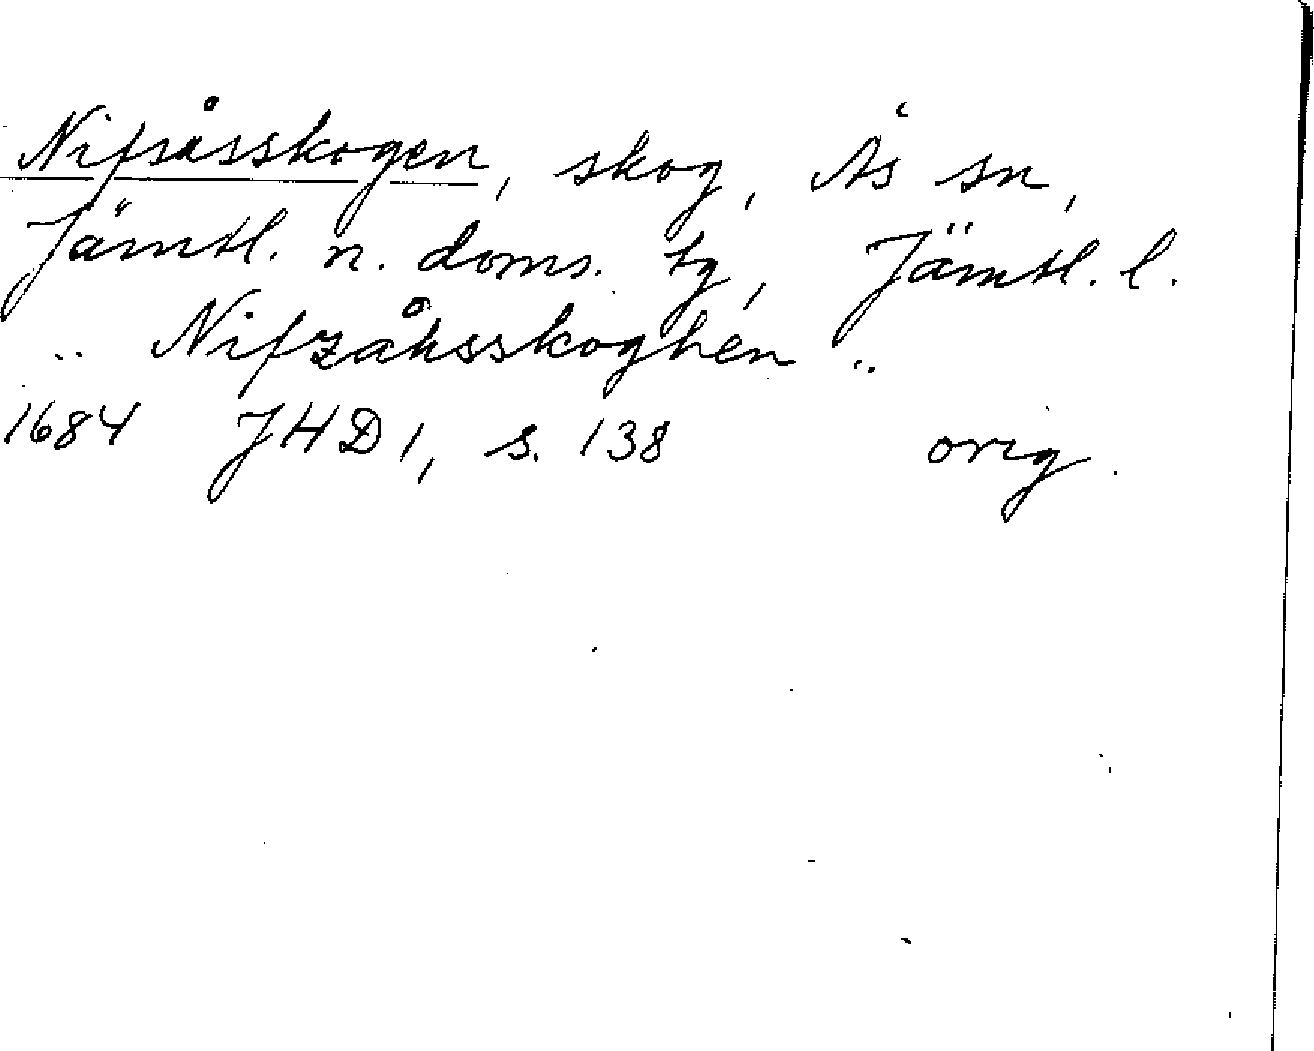 Nifsåsskogen, skog, Ås sn,
Jämtl. n. doms. tg, Jämtl. l.
.. Nifzåhsskoghen ..
1684 JHD 1, s. 138 orig.